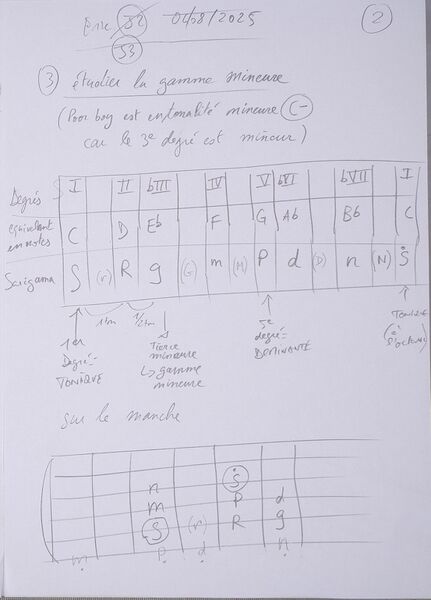 52 04/08/2025 2
53
3 étudier la gamme mineure
(Poor boy est en tonalité mineure C-
car le 3e degré est mineur)
Degrés I II bIII IV V bVI bVII I
équivalent en notes C D Eb F G Ab Bb C
Sarigama S (r) R g (G) m (M) P d (D) n (N) Ṡ
1 tm 1/2 tm
1er Degré = TONIQUE
Tierce mineure
↳ gamme mineure
5e degré = DOMINANTE
TONIQUE (à l'octave)
sur le manche
Ṡ
n P d
m R g
S (r)
ṃ P̣ ḍ ṇ